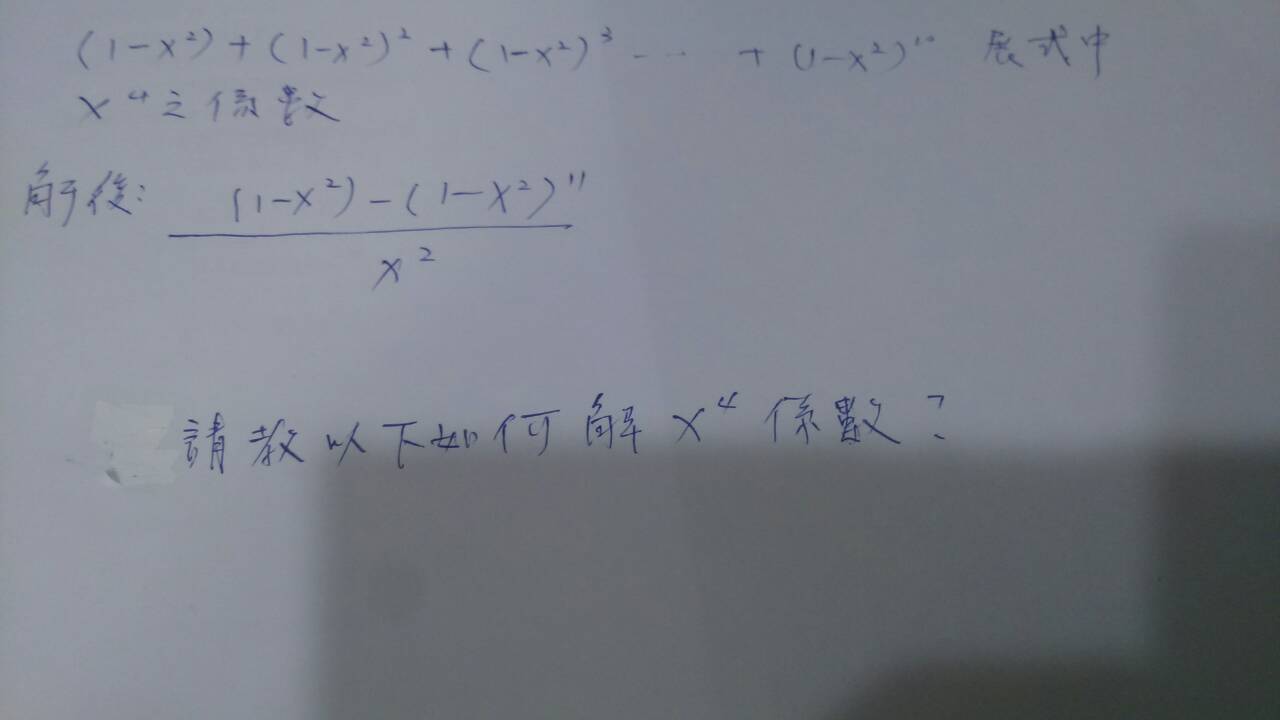 (1-x²)+(1-x²)²+(1-x²)³ ‥ ‥ +(1-x²)¹⁰ 展式中
x⁴之係數
解後: (1-x²)-(1-x²)¹¹
x²
請教以下如何解x⁴係數?